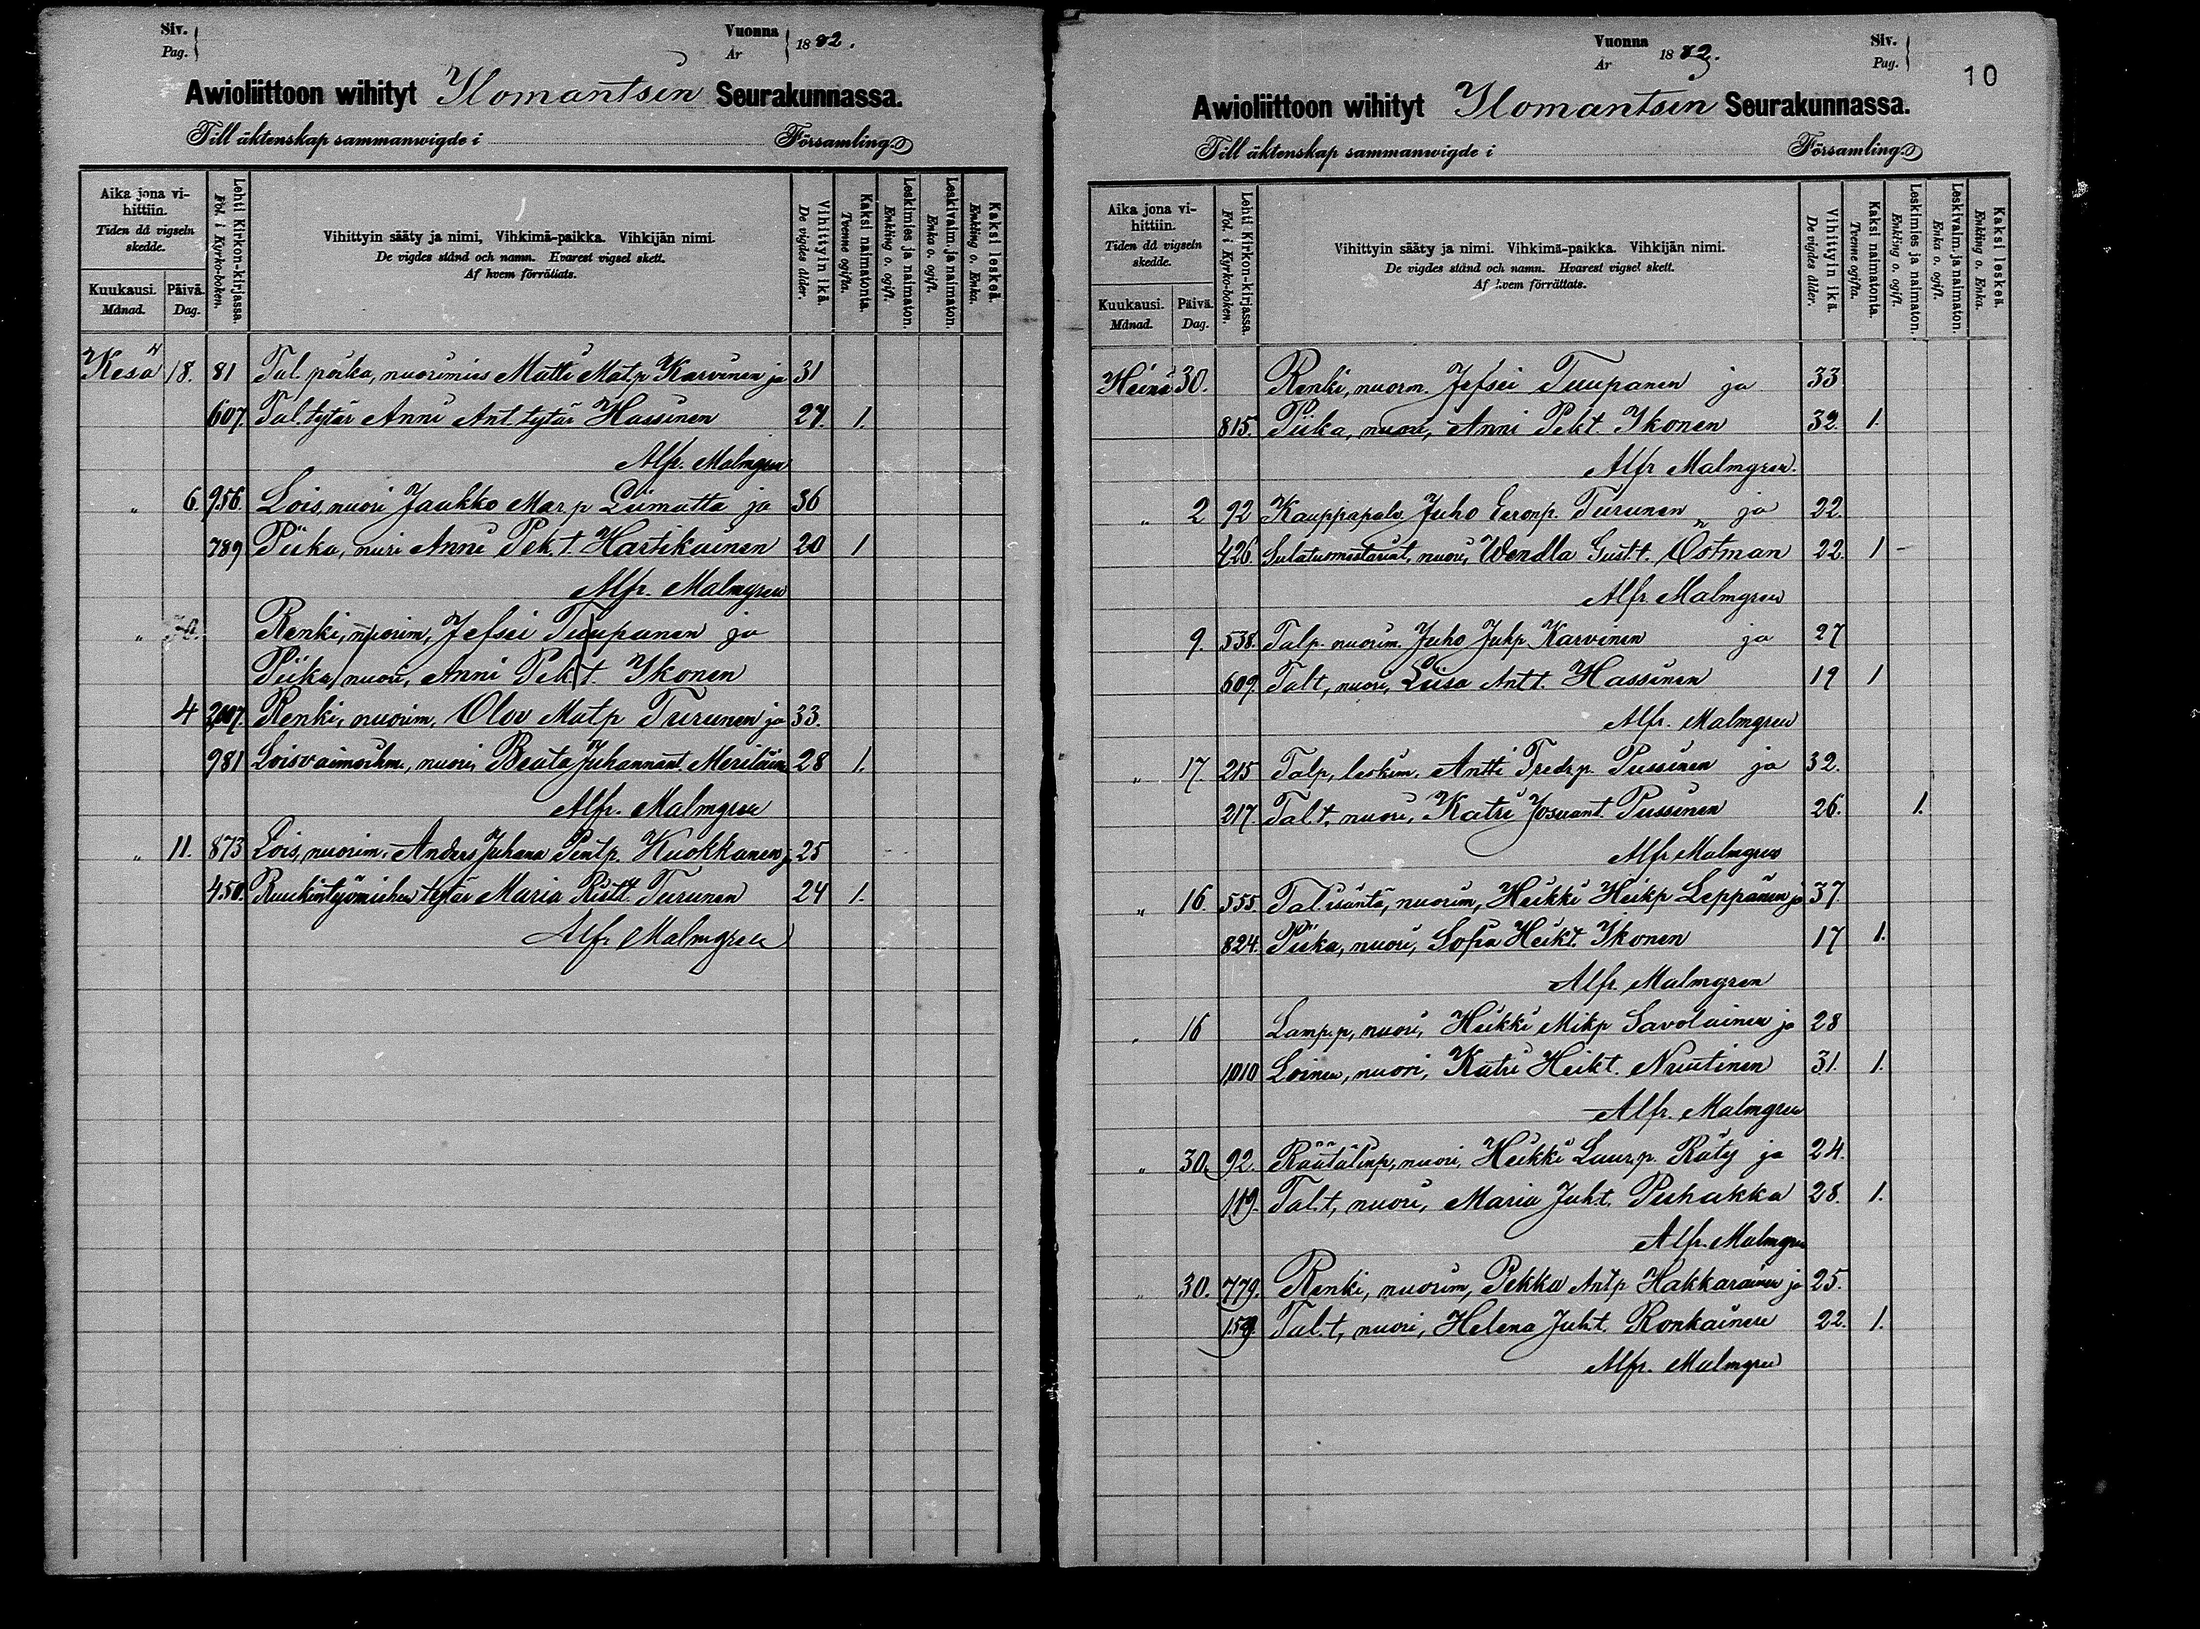 Siv.
Pag.
Vuonna
År
1882.
Awioliittoon wihityt Ilomantsin Seurakunnassa.
Till äktenskap sammanwigde i Församling.
Aika jona vi-
hittiin.
Tiden då vigseln
skedde.
Kuukausi.
Månad.
Päivä.
Dag.
Lehti Kirkon-kirjassa.
Fol. i Kyrko-boken.
Vihittyin sääty ja nimi, Vihkimä-paikka. Vihkijän nimi.
De vigdes stånd och namn. Hvarest vigsel skett.
Af hvem förrättats.
Vihittyin ikä.
De vigdes ålder.
Kaksi naimatonta.
Tvenne ogifta.
Leskimies ja naimaton.
Enkling o. ogift.
Leskivaim. ja naimaton.
Enka o. ogift.
Kaksi leskeä.
Enkling o. Enka.
Kesä 18. 81 Tal. poika, nuorimies Matti Mat.p Karvinen ja 31
607. Tal. tytär Anni Ant. tytär Hassinen 27. 1.
Alfr. Malmgren
" 6. 956. Lois, nuori Jaakko Mar p Liimatta ja 36
789 Piika, nuri Anni Pek.t. Hartikainen 20 1
Alfr. Malmgren
" 30. Renki, nuorim, Jefsei Tuupanen ja
Piika nuori, Anni Pekt. Ikonen
4 2,007. Renki, nuorim, Olov Matp Turunen ja 33.
981 nuori, Beata Juhannant. 28 1.
Alfr. Malmgren
" 11. 873 Lois, nuorim. Anders Juhana Pentp. Kuokkanen j. 25
450. Ruukintyömiehen tytär Maria Ristt. Turunen 24 1.
Alfr Malmgren
Vuonna
År
1882.
Siv.
Pag.
10
Awioliittoon wihityt Ilomantsin Seurakunnassa.
Till äktenskap sammanwigde i Församling.
Aika jona vi-
hittiin.
Tiden då vigseln
skedde.
Kuukausi.
Månad.
Päivä.
Dag.
Lehti Kirkon-kirjassa.
Fol. i Kyrko-boken.
Vihittyin sääty ja nimi. Vihkimä-paikka. Vihkijän nimi.
De vigdes stånd och namn. Hvarest vigsel skett.
Af hvem förrättats.
Vihittyin ikä.
De vigdes ålder.
Kaksi naimatonta.
Tvenne ogifta.
Leskimies ja naimaton.
Enkling o. ogift.
Leskivaim. ja naimaton.
Enka o. ogift.
Kaksi leskeä.
Enkling o. Enka.
Heinä 30. Renki, nuorm. Jefsei Tuupanen ja 33
815. Piika, nuori, Anni Pekt. Ikonen 32. 1.
Alfr Malmgren.
" 2 92 Kauppapalv. Juho Eeronp. Turunen ja 22.
426. nuori, Wendla Gust.t. Östman 22. 1
Alfr. Malmgren
9. 538. Talp. nuorim. Juho Juhp Karvinen ja 27
609. Talt, nuori, Liisa Antt. Hassinen 19 1
Alfr. Malmgren
" 17. 215 Talp, leskim. Antti Fredr.p. Pussinen ja 32.
217. Tal.t, nuori, Katri Josuant. Pussinen 26. 1.
Alfr Malmgren
" 16. 555. Tal.isäntä, nuorim, Heikki Heikp Leppänen ja 37.
824. Piika, nuori, Sofia Heikt. Ikonen 17 1.
Alfr. Malmgren
" 16 Lamp.p, nuori, Heikki Mikp Savolainen ja 28
1,010 Loinen, nuori, Katri Heikt. Nuutinen 31. 1.
Alfr. Malmgren
" 30. 92. Räätälinp, nuori, Heikki Laur.p. Räty ja 24.
119. Tal.t, nuori, Maria Juht. Puhakka 28. 1.
Alfr. Malmgren
" 30. 779. Renki, nuorim, Pekka Antp Hakkarainen ja 25.
159. Tal.t, nuori, Helena Juht. Ronkainen 22. 1.
Alfr. Malmgren